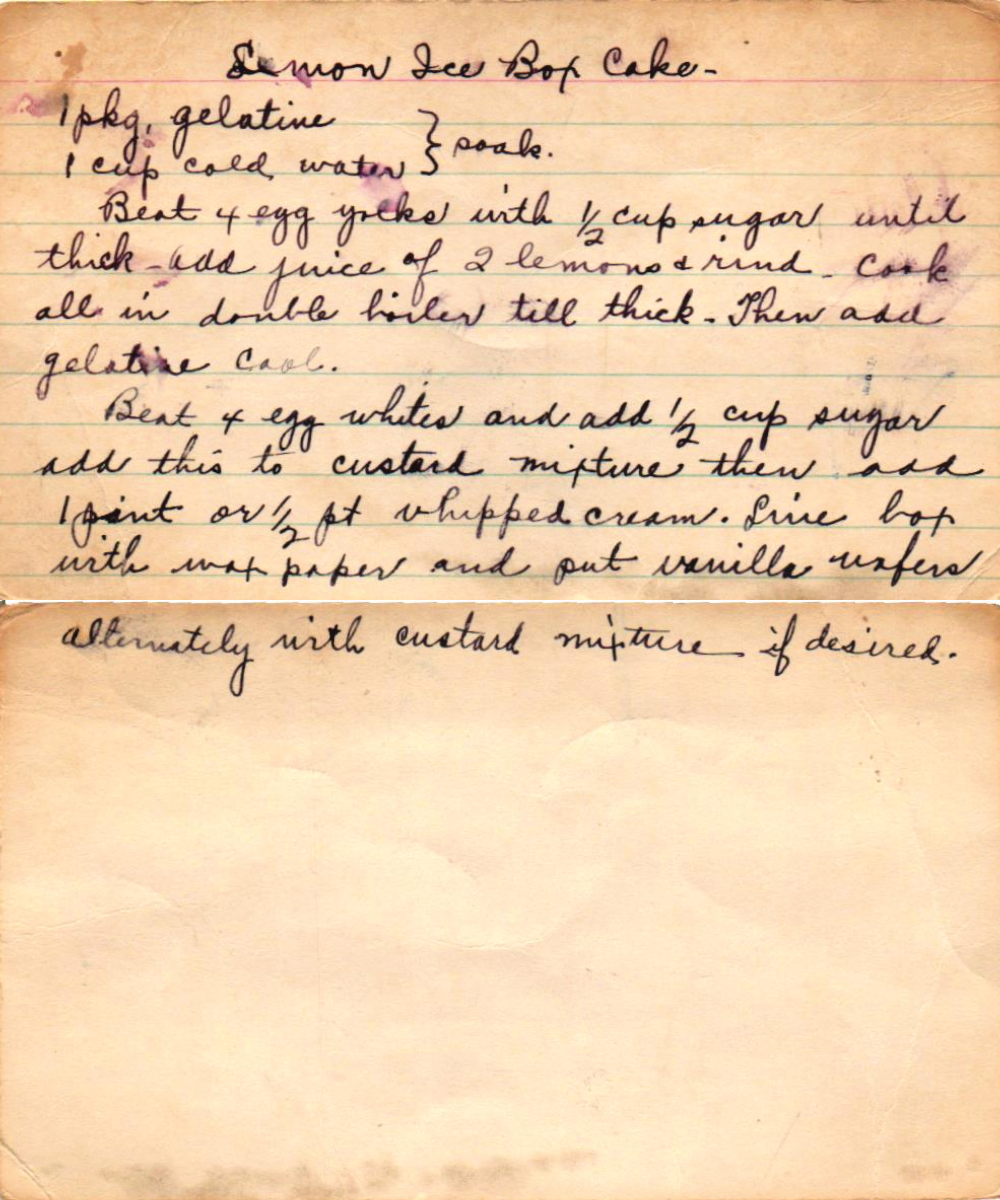 Lemon Ice Box Cake-
1 pkg, gelatine
1 cup cold water } soak.
Beat 4 egg yolks with 1/2 cup sugar until
thick - add juice of 2 lemons & rind - cook
all in double boiler till thick - Then add
gelatine cool.
Beat 4 egg whites and add 1/2 cup sugar
add this to custard mixture then add
1 pint or 1/2 pt whipped cream. Line box
with wax paper and put vanilla wafers
alternately with custard mixture if desired.